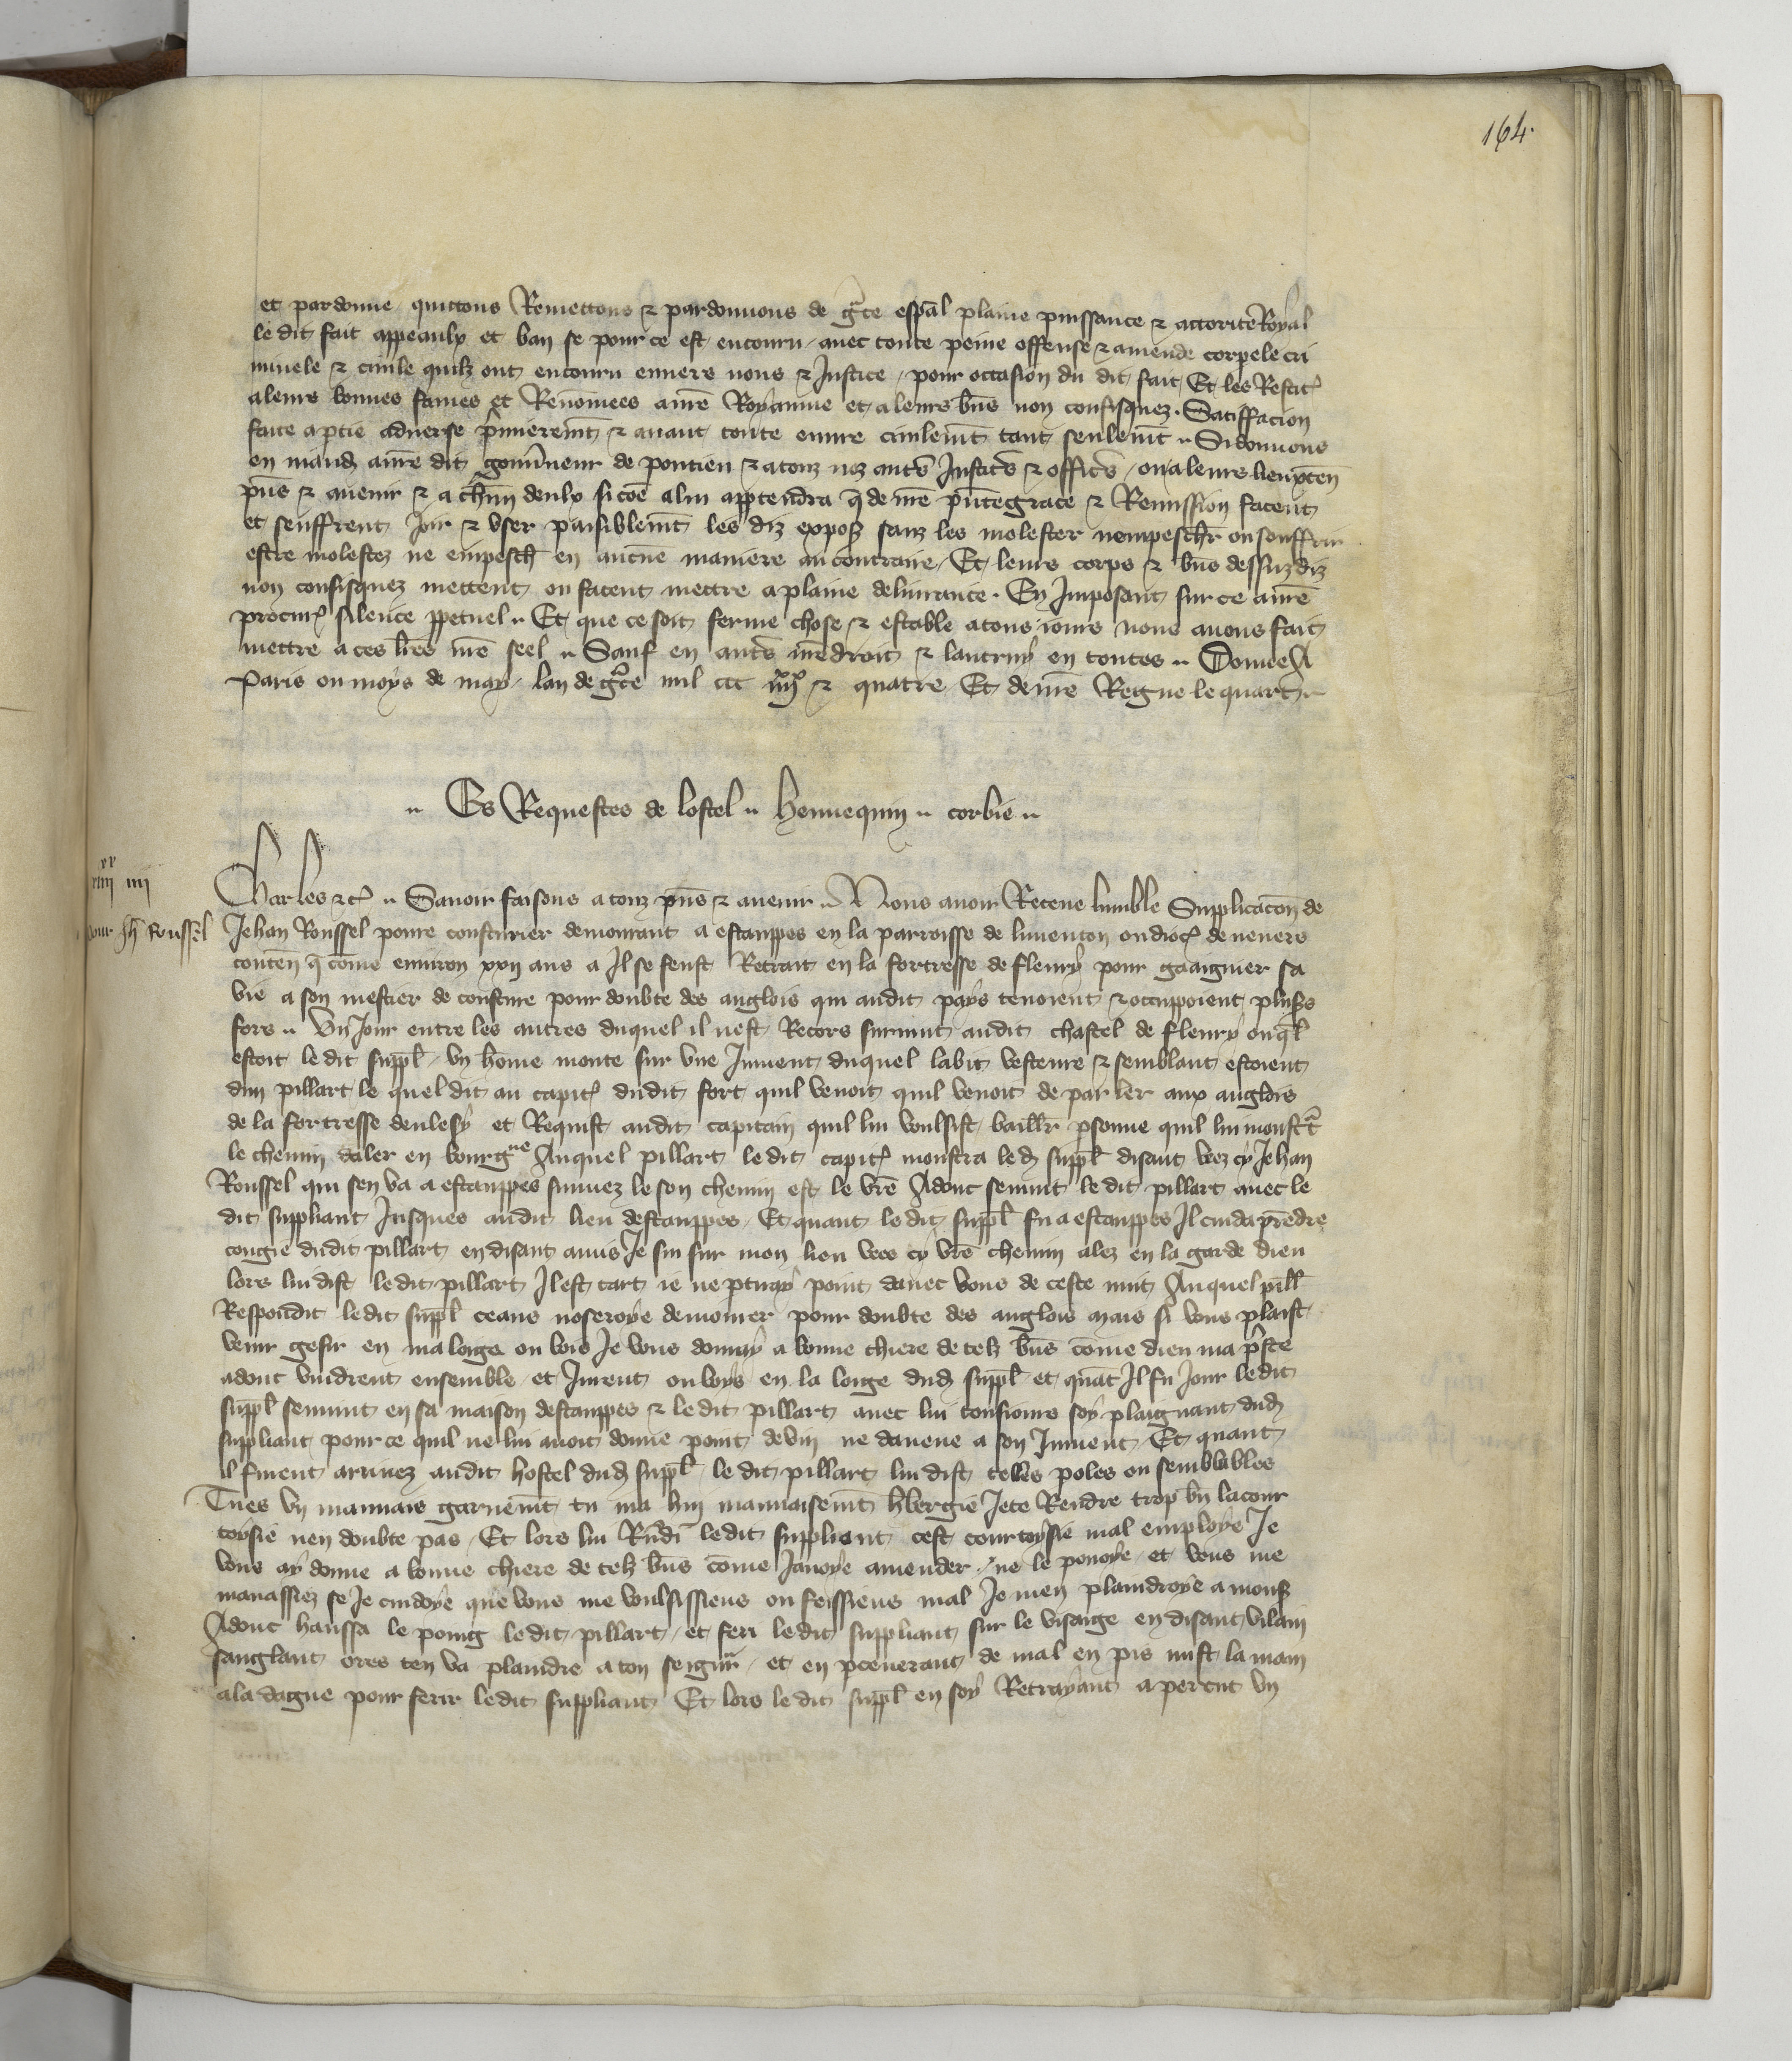 164
et pardonne quittons Remettons & pardonnons de gr̃ce esp̃al plaine puissance & actorite Royal
le dit fait appeaulx et ban se pour ce est encouru, avec toute peine offense & amende corpele cri
minele & civile quilz ont encouru envers nous & Justice, pour occasion du dit fait, Et les Restit⁾
a leurs bonnes fames et Renom̃ees a nr̃e Royaume et a leurs bñs non confisquez. Satiffacion
faite a ptie adverse pˀmieremt̃ & avant toute euvre civilemt̃ tant seulemt̃ .. Si donnons
en mand̃ a nr̃e dit gouv̾neur de pontieu & a touz noz autˀs Justicˀs & officˀs, ou a leurs lieuxteñ
pñs & avenir & a chũn deulx si coẽ a lui appˀtendra q̃ de nr̃e pñte grace & Remission facent
et seuffrent Joir & user paisiblemt̃ les diz exposz sanz les molester nempescher̃ ou souffrir
estre molestez ne empesch̃ en aucũe maniere au contraire, Et leurs corps & bñs dessuz diz
non confisquez mettent ou facent mettre a plaine delivrance. En Imposant sur ce a nr̃e
procur⁾ silence ppetuel .. Et que ce soit ferme chose & estable a tous jours nous avons fait
mettre a ces lr̃es nr̃e seel .. Sauf en autˀs nr̃e droit & lautruy en toutes .. Donne A
Paris ou moys de may, lan de gr̃ce mil ccc iiijˣˣ & quatre Et de nr̃e Regne le quart ..
.. Es Requestes de lostel .. hennequin .. corbie ..
iiij
pour Jh̃ Roussel
Charles &c⁾ .. Savoir faisons a touz pñs & avenir .. Nous avoir Receue lumble Supplicacõn de
Jehan Roussel povre cousturier demourant a estamppes en la parroisse de lurenton ou dioc⁾ de nevers
conteñ q̃ com̃e environ xxij ans a Il se feust Retrait en la fortresse de fleury pour gaaignier sa
vie a son mestier de cousture pour doubte des anglois qui audit pays tenoient & occuppoient plus̾s
fors .. Un Jour entre les autres duquel il nest Recors survint audit chastel de fleury ouq̃l
estoit le dit suppl̃, un hom̃e monte sur une Jument duquel labit vesteure & semblant estoient
dun pillart le quel dit au capit⁾ dudit fort quil venoit quil venoit de parler aux anglois
de la fortresse deulesy et Requist audit capitain quil lui voulsist baillr̃ psonne quil lui monstr̃t
le chemin daler en bourgⁿᵉ Auquel pillart le dit capit⁾ monstra led̃ suppl̃ disant veez cy Jehan
Roussel qui sen va a estamppes suivez le son chemin est le vr̃e Adonc sen vint le dit pillart avec le
dit suppliant Jusques audit lieu destamppes, Et quant le dit suppl̃ fu a estamppes Il cuida prẽdre
congie dudit pillart en disant amis Je sui sur mon lieu vees cy vr̃e chemin alez en la garde dieu
lors lui dist le dit pillart Il est tart ie ne ptiray point davec vous de ceste nuit Auquel pill̃
Respondit le dit suppl̃ ceans noseroye demourer pour doubte des anglois mais si vous plaist
venir gesir en ma loige ou bois Je vous donray a bonne chiere de telz bñs com̃e dieu ma pˀste
adonc vindrent ensemble et Jurent ou boys en la loige dud̃ suppl̃ et quãt Il fu Jour le dit
suppl̃ sen vint en sa maison destamppes & le dit pillart avec lui tousiours soy plaignant dud̃
suppliant pour ce quil ne lui avoit donne point de vin ne davene a son Jument Et quant
il furent arrivez audit hostel dud̃ suppl̃ le dit pillart lui dist telles poles ou semblables
Tu es un mauvais garnemt̃ tu ma huy mauvaisemt̃ h̾bergie Je te Rendre trop bñ la cour
toysie nen doubte pas, Et lors lui Rñdi le dit suppliant cest courtoysie mal employe Je
vous ay donne a bonne chiere de telz bñs com̃e Javoye amender ne le povoye et vous me
manassiez se Je cuidoye que vous me voulsissiens ou feissiens mal Je men plaindroye a mons̾
Adonc haussa le poing le dit pillart et feri le dit suppliant sur le visaige en disant vilain
sanglant ores ten va plaindre a ton seignr̃, et en pceverant de mal en pis mist la main
a la dague pour ferir le dit suppliant Et lors le dit suppl̃ en soy Retrayant apercut un